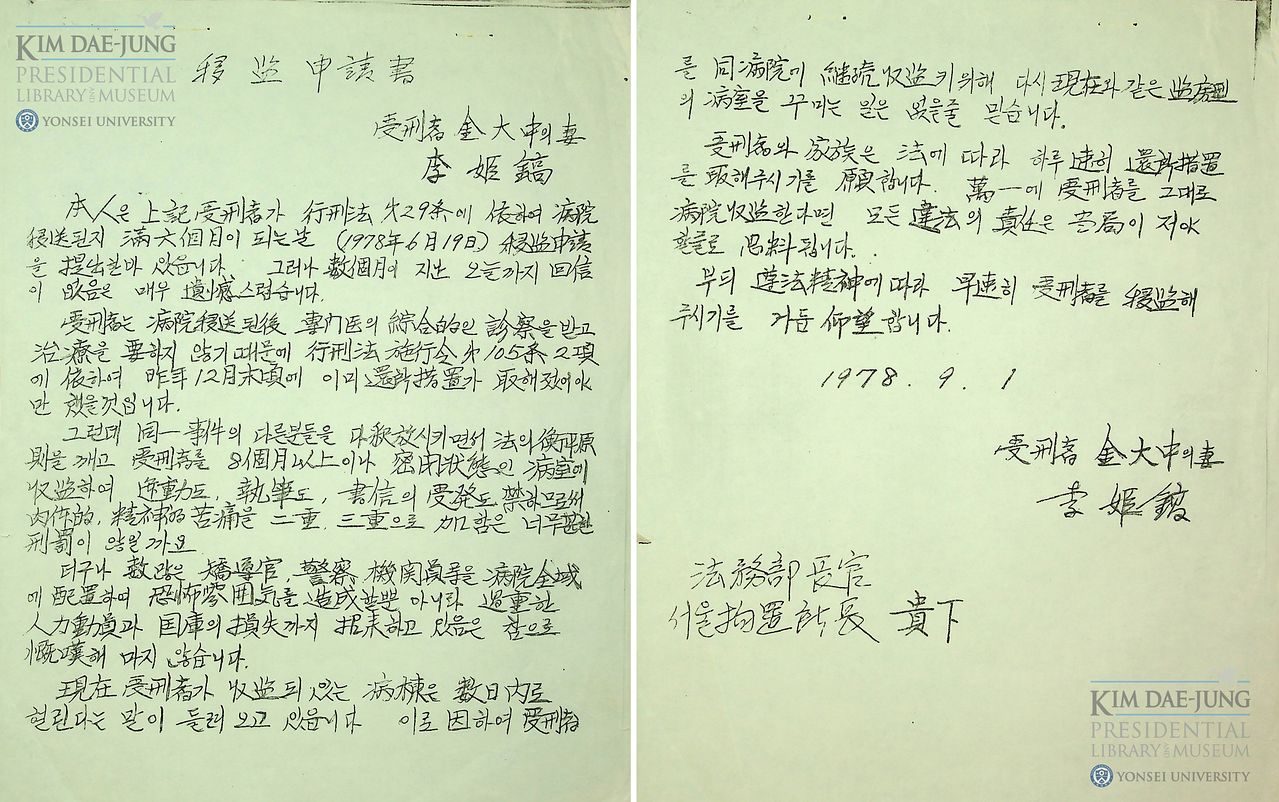 KIM DAE-JUNG
PRESIDENTIAL
LIBRARY AND MUSEUM
YONSEI UNIVERSITY
移监申請書
受刑者 金大中의 妻
李姬鎬
本人은 上記 受刑者가 行刑法 第29条에 依하여 病院
移送된지 滿六個月이 되는날 (1978年6月19日) 移监申請
을 提出한바 있읍니다. 그러나 数個月이 지난 오늘까지 回信
이 없음은 매우 遺憾스럽습니다.
受刑者는 病院移送된後 専门医의 綜合的인 診察을 받고
治療를 要하지 않기때문에 行刑法 施行令 第105条 2項
에 依하여 昨年 12月末頃에 이미 還所措置가 取해졌어야
만 했을것입니다.
그런데 同一事件의 다른분들을 다 釈放시키면서 法의 衡平原
則을 깨고 受刑者를 8個月以上이나 密閉状態인 病室에
収监하여, 運動도, 執筆도, 書信의 受発도 禁하므로써
肉体的, 精神的 苦痛을 二重, 三重으로 加함은 너무
刑罰이 않일까요
더구나 数많은 矯導官, 警察, 機関員等을 病院全域
에 配置하여 恐怖雰囲気를 造成할뿐 아니라 過重한
人力動員과 国庫의 損失까지 招来하고 있음은 참으로
慨嘆해 마지 않습니다.
現在 受刑者가 収监되 있는 病棟은 数日内로
헐린다는 말이 들려 오고 있읍니다 이로 因하여 受刑者
를 同病院에 継続 収监키 위해 다시 現在와 같은 监房型
의 病室을 꾸미는 일은 없을줄 믿습니다.
受刑者와 家族은 法에 따라 하루 速히 還所措置
를 取해주시기를 願합니다. 萬一에 受刑者를 그대로
病院収监한다면 모든 違法의 責任은 当局이 저야
할줄로 思料됩니다.
부디 遵法精神에 따라 早速히 受刑者를 移监해
주시기를 거듭 仰望합니다.
1978. 9. 1
受刑者 金大中의 妻
李姬鎬
法務部長官
서울拘置所長 貴下
KIM DAE-JUNG
PRESIDENTIAL
LIBRARY AND MUSEUM
YONSEI UNIVERSITY